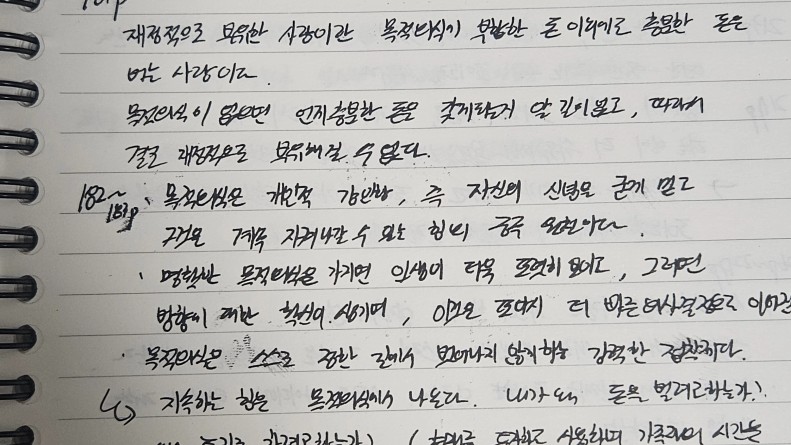 재정적으로 부유한 사람이란 목적의식에 부합한 돈 이외에도 충분한 돈을
버는 사람이다.
목적의식이 없으면 언제 충분한 돈을 갖게 되는지 알 길이 없고, 따라서
결코 재정적으로 부유해질 수 없다.
182~
183p · 목적의식은 개인적 강인함, 즉 자신의 신념을 굳게 믿고
그것을 계속 지켜나갈 수 있는 힘의 궁극 원천이다.
· 명확한 목적의식을 가지면 인생이 더욱 또렷히 보이고, 그러면
방향에 대한 확신이 생기며, 이것은 또다시 더 빠른 의사결정으로
· 목적의식은 스스로 정한 길에서 벗어나지 않게 하는 강력한 접착제다.
↳ 지속하는 힘은 목적의식에서 나온다. 내가 왜 돈을 벌려고 하는가?